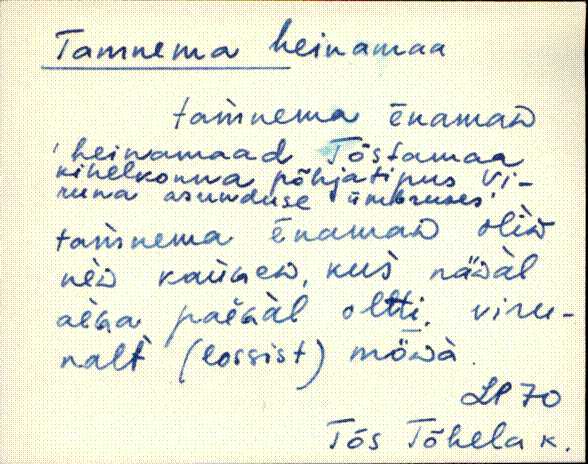 Tamnema heinamaa
tam̀nema ēnamaᴅ
'heinamaad Tõstamaa
kihelkonna põhjatipus Vi-
runa asunduse ümbruses'
tam̀nema ēnamaᴅ oliᴅ
nèᴅ kauɢeᴅ, kus nä̀ᴅàl
aèɢa paèɢàl oltti. viru-
nalt (lossist) mö̀ᴅà.
LP 70
Tõs Tõhela k.